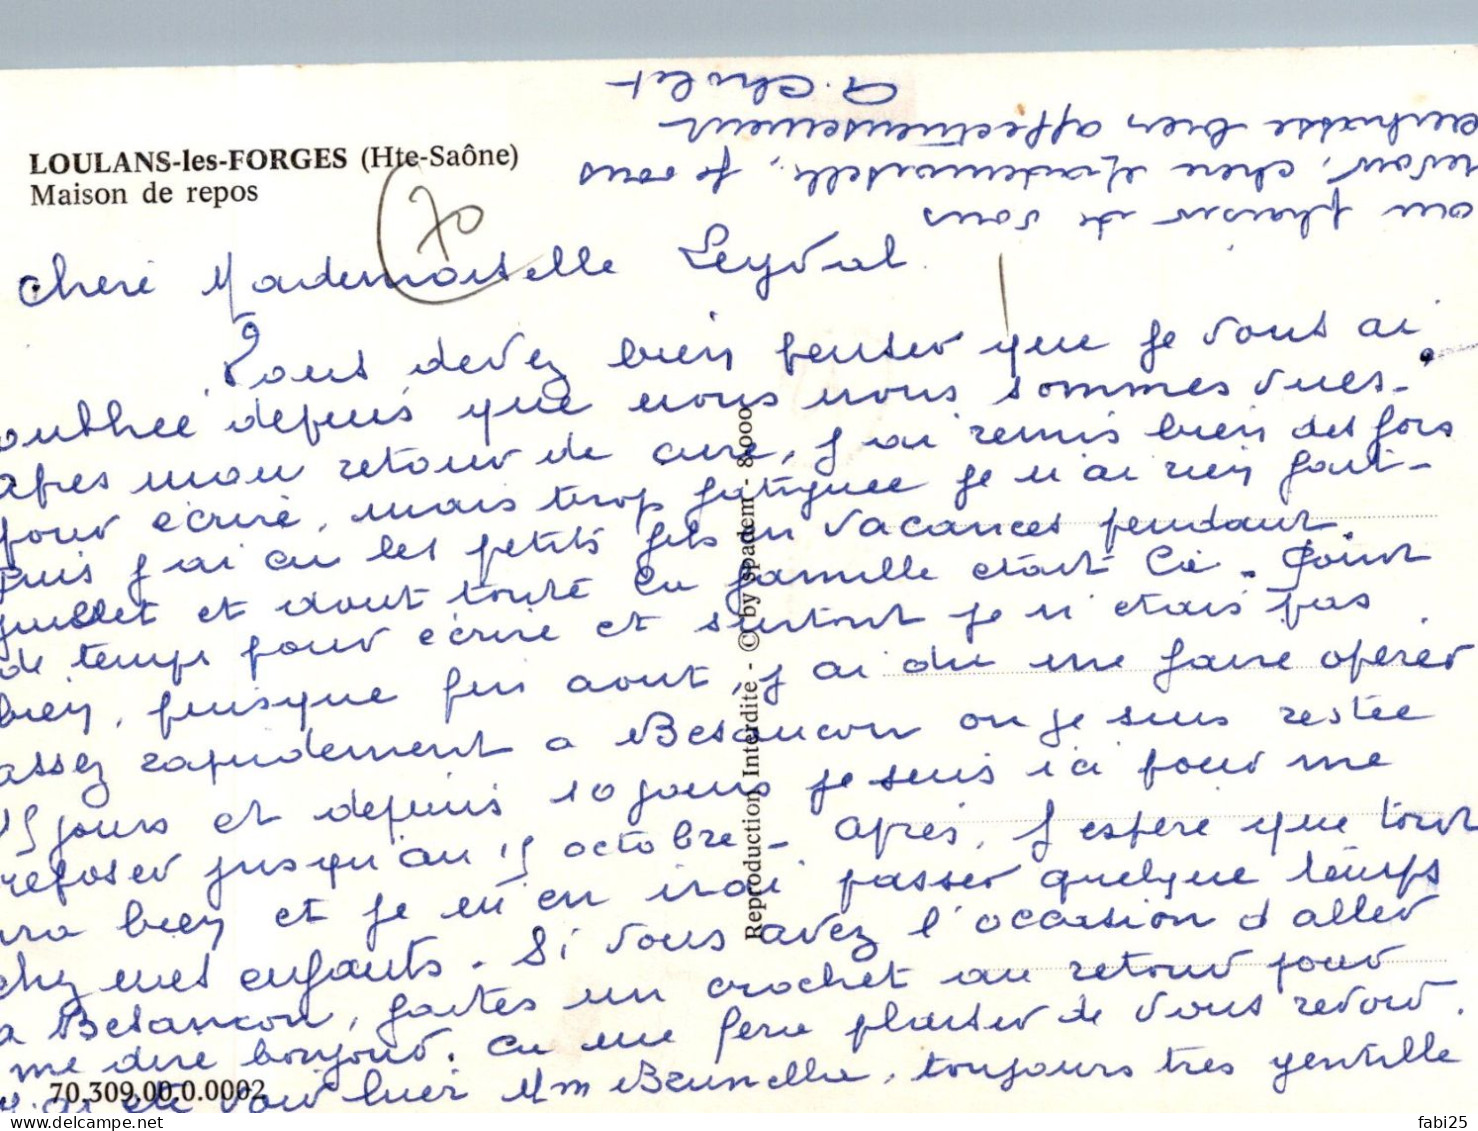 LOULANS-les-FORGES (Hte-Saône)
Maison de repos
70
Chère Mademoiselle Leyval
Vous devez bien penser que je vous ai
oubliée depuis que nous nous sommes vues -
après mon retour de cure, j'ai remis bien des fois
pour écrire, mais trop fatiguée je n'ai rien fait -
puis j'ai eu les petits fils en vacances pendant
juillet et aout toute la famille était là - Point
de temps pour écrire et surtout je n'étais pas
bien, puisque fin aout, j'ai du me faire opérer
assez rapidement a Besancon ou je suis restée
15 jours et depuis 10 jours je suis ici pour me
reposer jusqu'au 15 octobre - après, j'espère que tout
ira bien et je m'en irai passer quelque temps
chez mes enfants - Si vous avez l'occasion d'aller
a Besancon, faites un crochet au retour pour
me dire bonjour. Ca me fera plaisir de vous revoir.
J'ai été voir hier Mme Brunelle, toujours très gentille
au plaisir de vous
revoir, chère Mademoiselle, je vous
embrasse bien affectueusement
Reproduction Interdite - © by spadem - 8.000
70.309.00.0.0002
delcampe.net
fabi25